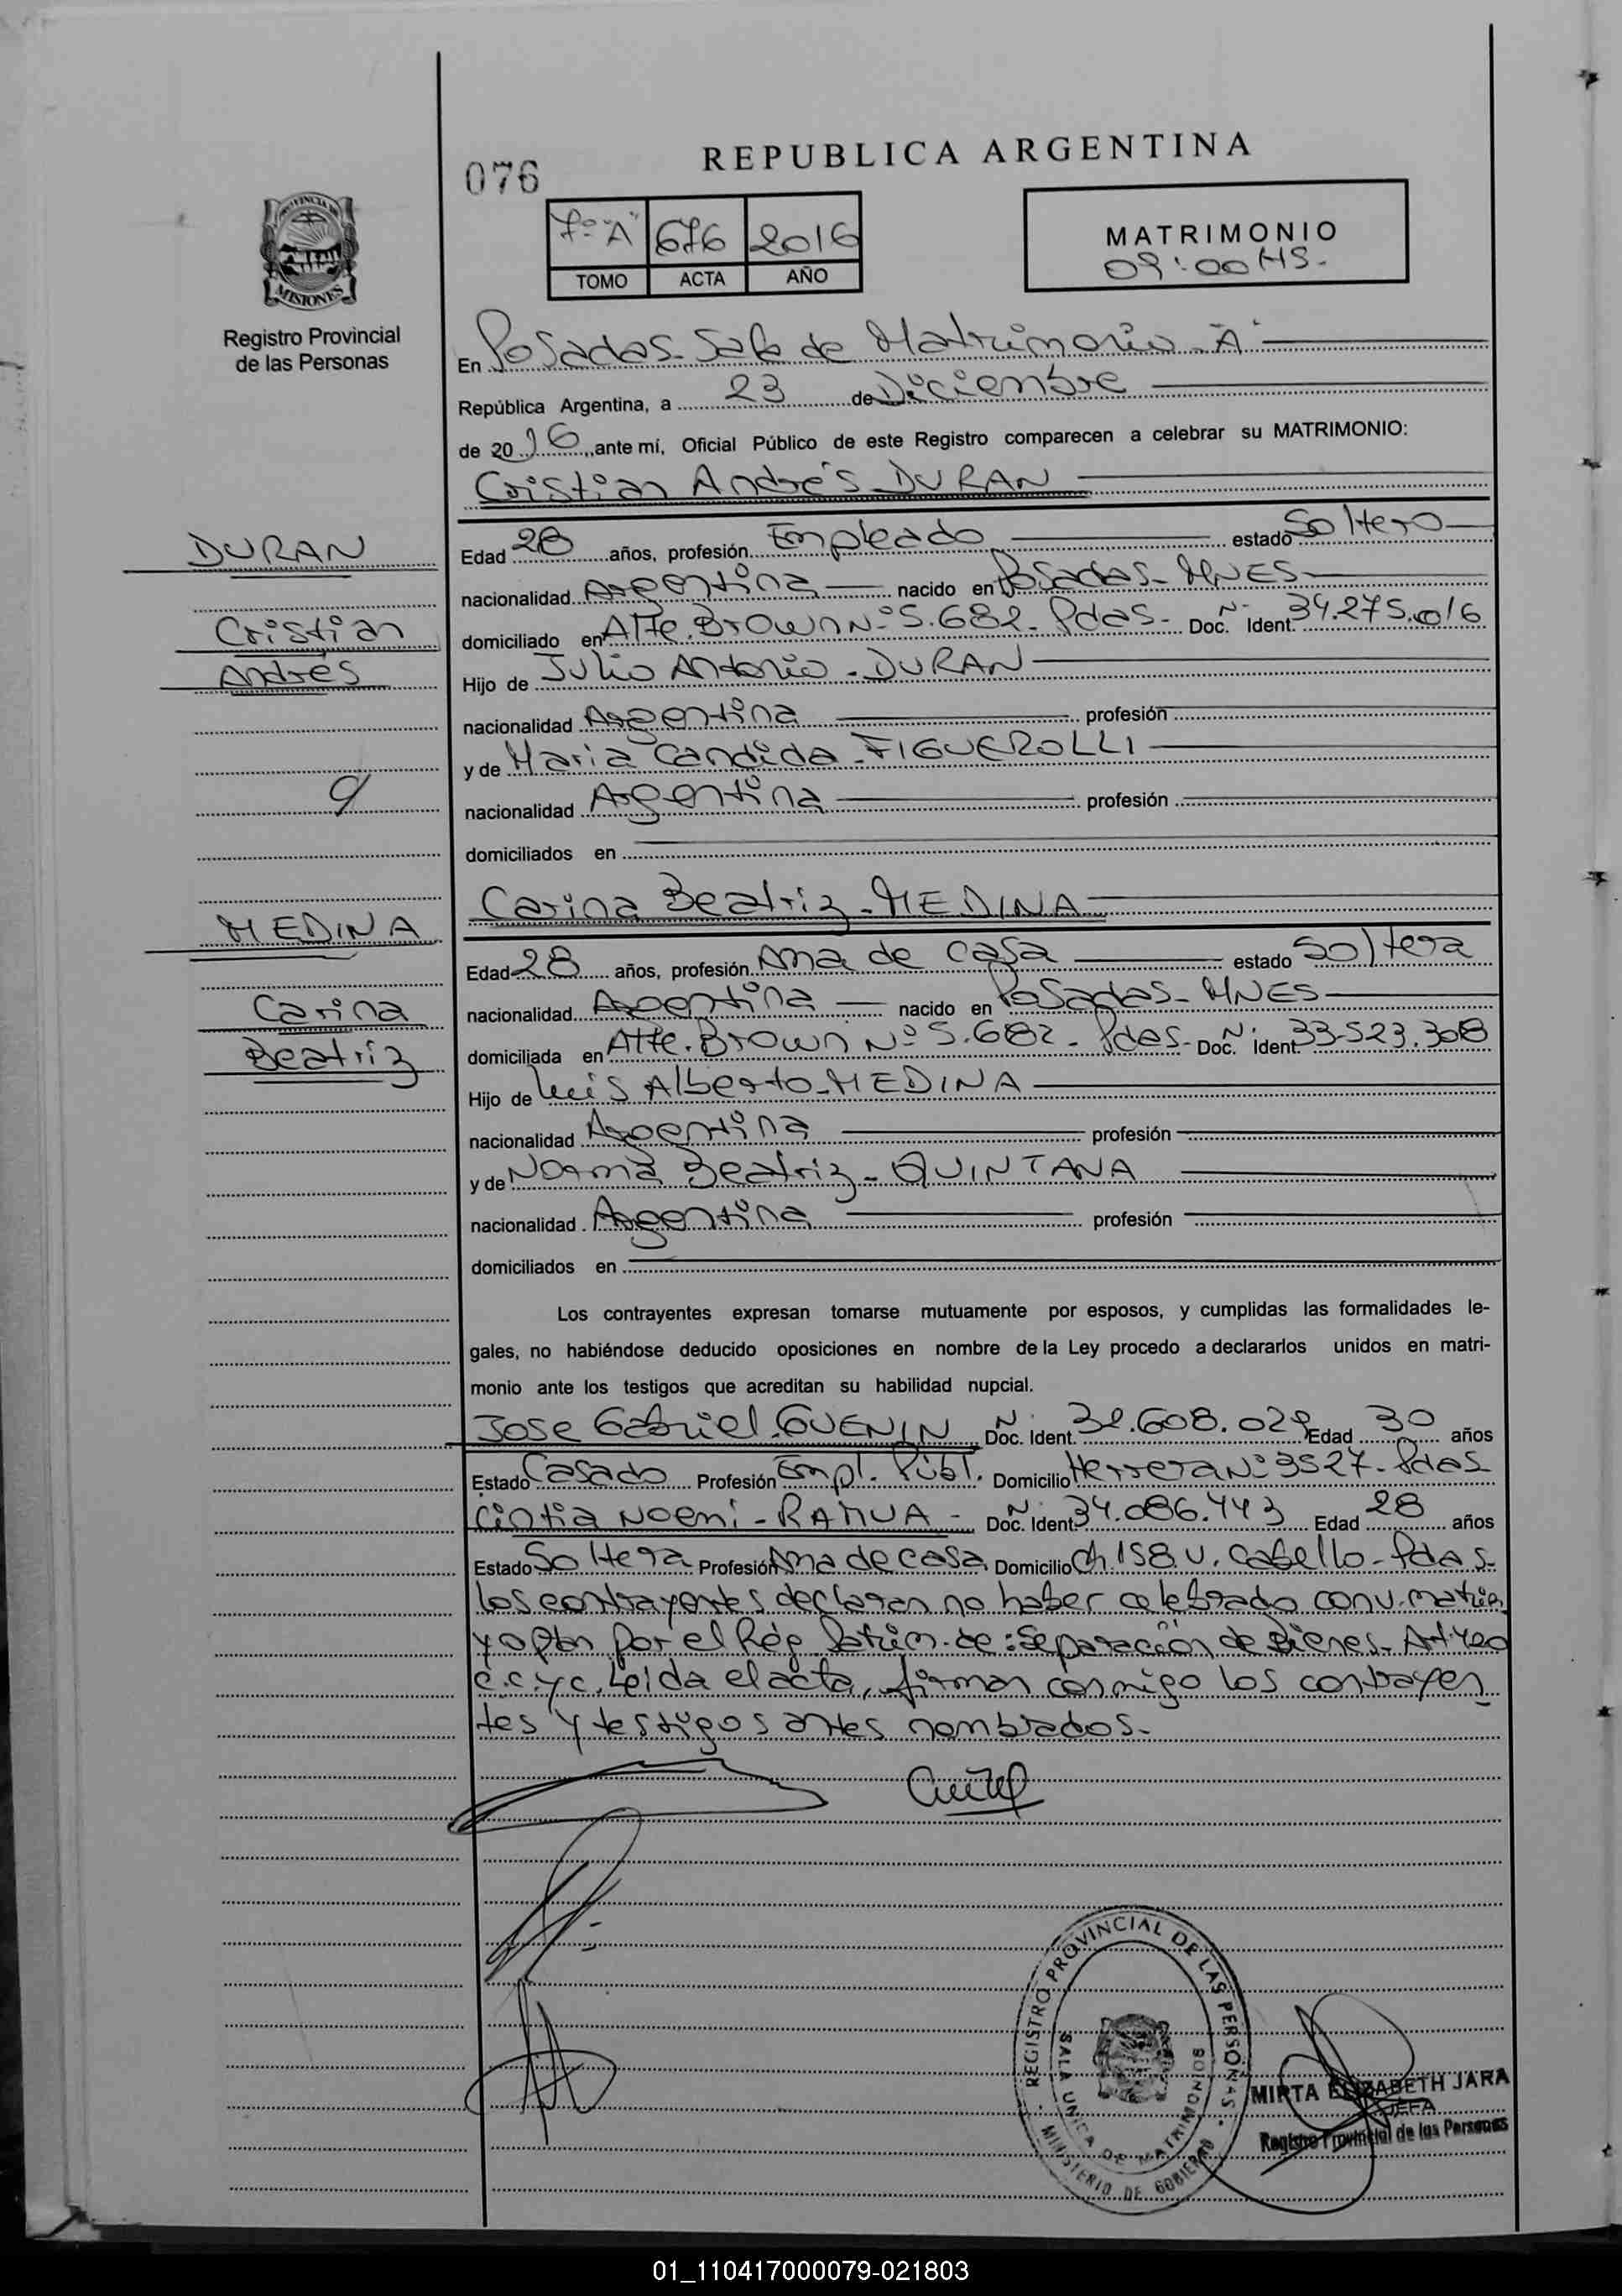 076
REPUBLICA ARGENTINA
7º "A" 676 2016
TOMO ACTA AÑO
MATRIMONIO
09:00 HS.-
PROVINCIA DE
MISIONES
Registro Provincial
de las Personas
En Posadas- Sala de Matrimonio- "A"
República Argentina, a 23 de Diciembre
de 2016, ante mí, Oficial Público de este Registro comparecen a celebrar su MATRIMONIO:
Cristian Andrés DURAN
DURAN
Cristian
Andrés
Edad 28 años, profesión Empleado estado Soltero
nacionalidad Argentina nacido en Posadas- MNES
domiciliado en Alte. Brown Nº 5.682- Pdas- Doc. Ident. Nº 34.275.016
Hijo de Julio Antonio- DURAN
nacionalidad Argentina profesión
y de Maria Candida- FIGUEROLLI
nacionalidad Argentina profesión
domiciliados en
Carina Beatriz- MEDINA
MEDINA
Carina
Beatriz
Edad 28 años, profesión Ama de casa estado Soltera
nacionalidad Argentina nacido en Posadas- MNES
domiciliada en Alte. Brown Nº 5.682- Pdas- Doc. Ident. Nº 33.523.308
Hijo de Luis Alberto- MEDINA
nacionalidad Argentina profesión
y de Norma Beatriz- QUINTANA
nacionalidad Argentina profesión
domiciliados en
Los contrayentes expresan tomarse mutuamente por esposos, y cumplidas las formalidades le-
gales, no habiéndose deducido oposiciones en nombre de la Ley procedo a declararlos unidos en matri-
monio ante los testigos que acreditan su habilidad nupcial.
Jose Gabriel- GUENIN Doc. Ident. Nº 32.608.029 Edad 30 años
Estado Casado Profesión Empl. Públ. Domicilio Herrera Nº 3527- Pdas
Cintia Noemi- RAMUA- Doc. Ident. Nº 34.086.443 Edad 28 años
Estado Soltera Profesión Ama de casa Domicilio Ch. 158. V. Cabello- Pdas-
Los contrayentes declaran no haber celebrado conv. matrim
y optan por el Rég. Patrim. de: Separación de Bienes- Art 420
C.C.y C. Leida el acta, firman conmigo los contrayen
tes y testigos antes nombrados.-
REGISTRO PROVINCIAL DE LAS PERSONAS
SALA UNICA DE MATRIMONIOS
MINISTERIO DE GOBIERNO
MIRTA ELIZABETH JARA
JEFA
Registro Provincial de las Personas
01_110417000079-021803